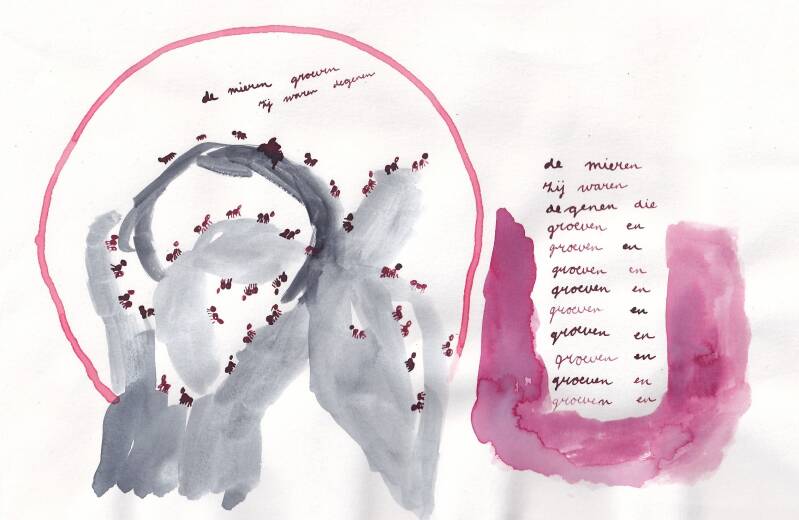 de mieren groeven
zij waren degenen
de mieren
zij waren
degenen die
groeven en
groeven en
groeven en
groeven en
groeven en
groeven en
groeven en
groeven en
groeven en